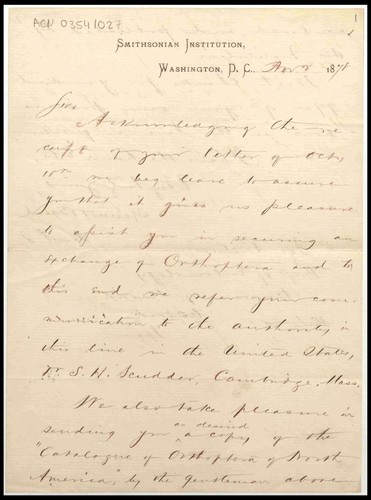 ACN 03541027
1
SMITHSONIAN INSTITUTION,
WASHINGTON, D. C. Nov 2 1878
Sir
Acknowledging the re
ceipt of your letter of Octr.
10th we beg leave to assure
you that it gives us pleasure
to assist you in securing an
exchange of Orthoptera and to
this end we refer your com
munication to the authority in
this line in the United States,
Dr. S. H. Scudder, Cambridge, Mass.
We also take pleasure in
as desired
sending you a copy of the
"Catalogue of Orthoptera of North
America", by the gentleman above